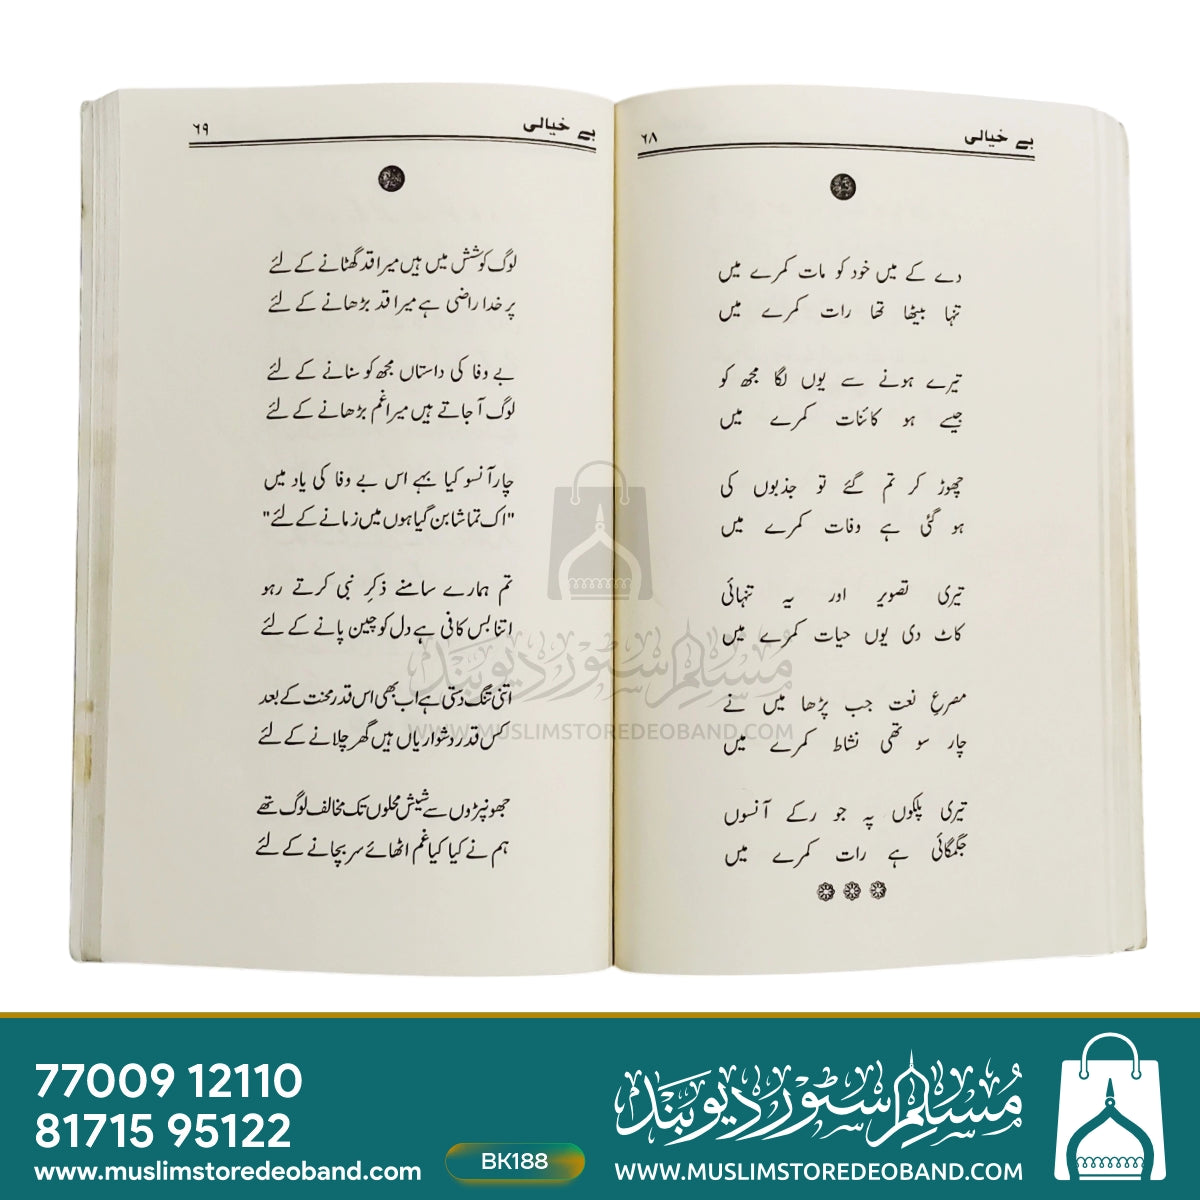 بے خیالی ۶۸
دے کے میں خود کو مات کمرے میں
تنہا بیٹھا تھا رات کمرے میں
تیرے ہونے سے یوں لگا مجھ کو
جیسے ہو کائنات کمرے میں
چھوڑ کر تم گئے تو جذبوں کی
ہو گئی ہے وفات کمرے میں
تیری تصویر اور یہ تنہائی
کاٹ دی یوں حیات کمرے میں
مصرعِ نعت جب پڑھا میں نے
چار سو تھی نشاط کمرے میں
تیری پلکوں پہ جو رکے آنسوں
جگمگائی ہے رات کمرے میں
بے خیالی ۶۹
لوگ کوشش میں ہیں میرا قد گھٹانے کے لئے
پر خدا راضی ہے میرا قد بڑھانے کے لئے
بے وفا کی داستاں مجھ کو سنانے کے لئے
لوگ آ جاتے ہیں میرا غم بڑھانے کے لئے
چار آنسو کیا بہے اس بے وفا کی یاد میں
"اک تماشا بن گیا ہوں میں زمانے کے لئے"
تم ہمارے سامنے ذکرِ نبی کرتے رہو
اتنا بس کافی ہے دل کو چین پانے کے لئے
اتنی تنگ دستی ہے اب بھی اس قدر محنت کے بعد
کس قدر دشواریاں ہیں گھر چلانے کے لئے
جھونپڑوں سے شیش محلوں تک مخالف لوگ تھے
ہم نے کیا کیا غم اٹھائے سر بچانے کے لئے
مسلم سٹور دیوبند
WWW.MUSLIMSTOREDEOBAND.COM
77009 12110
81715 95122
www.muslimstoredeoband.com
BK188
مُسلم سٹور دیوبند
WWW.MUSLIMSTOREDEOBAND.COM